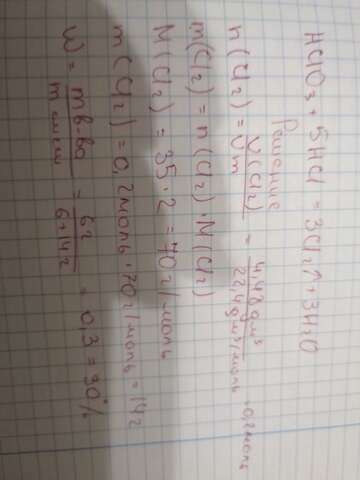 HClO3 + 5HCl = 3Cl2↑ + 3H2O
Решение
n(Cl2) = V(Cl2)/Vm = 4,48дм³/22,4дм³/моль = 0,2моль
m(Cl2) = n(Cl2) · M(Cl2)
M(Cl2) = 35 · 2 = 70г/моль
m(Cl2) = 0,2моль · 70г/моль = 14г
W = mв-ва/mсмеси = 6г/6+14г = 0,3 = 30%